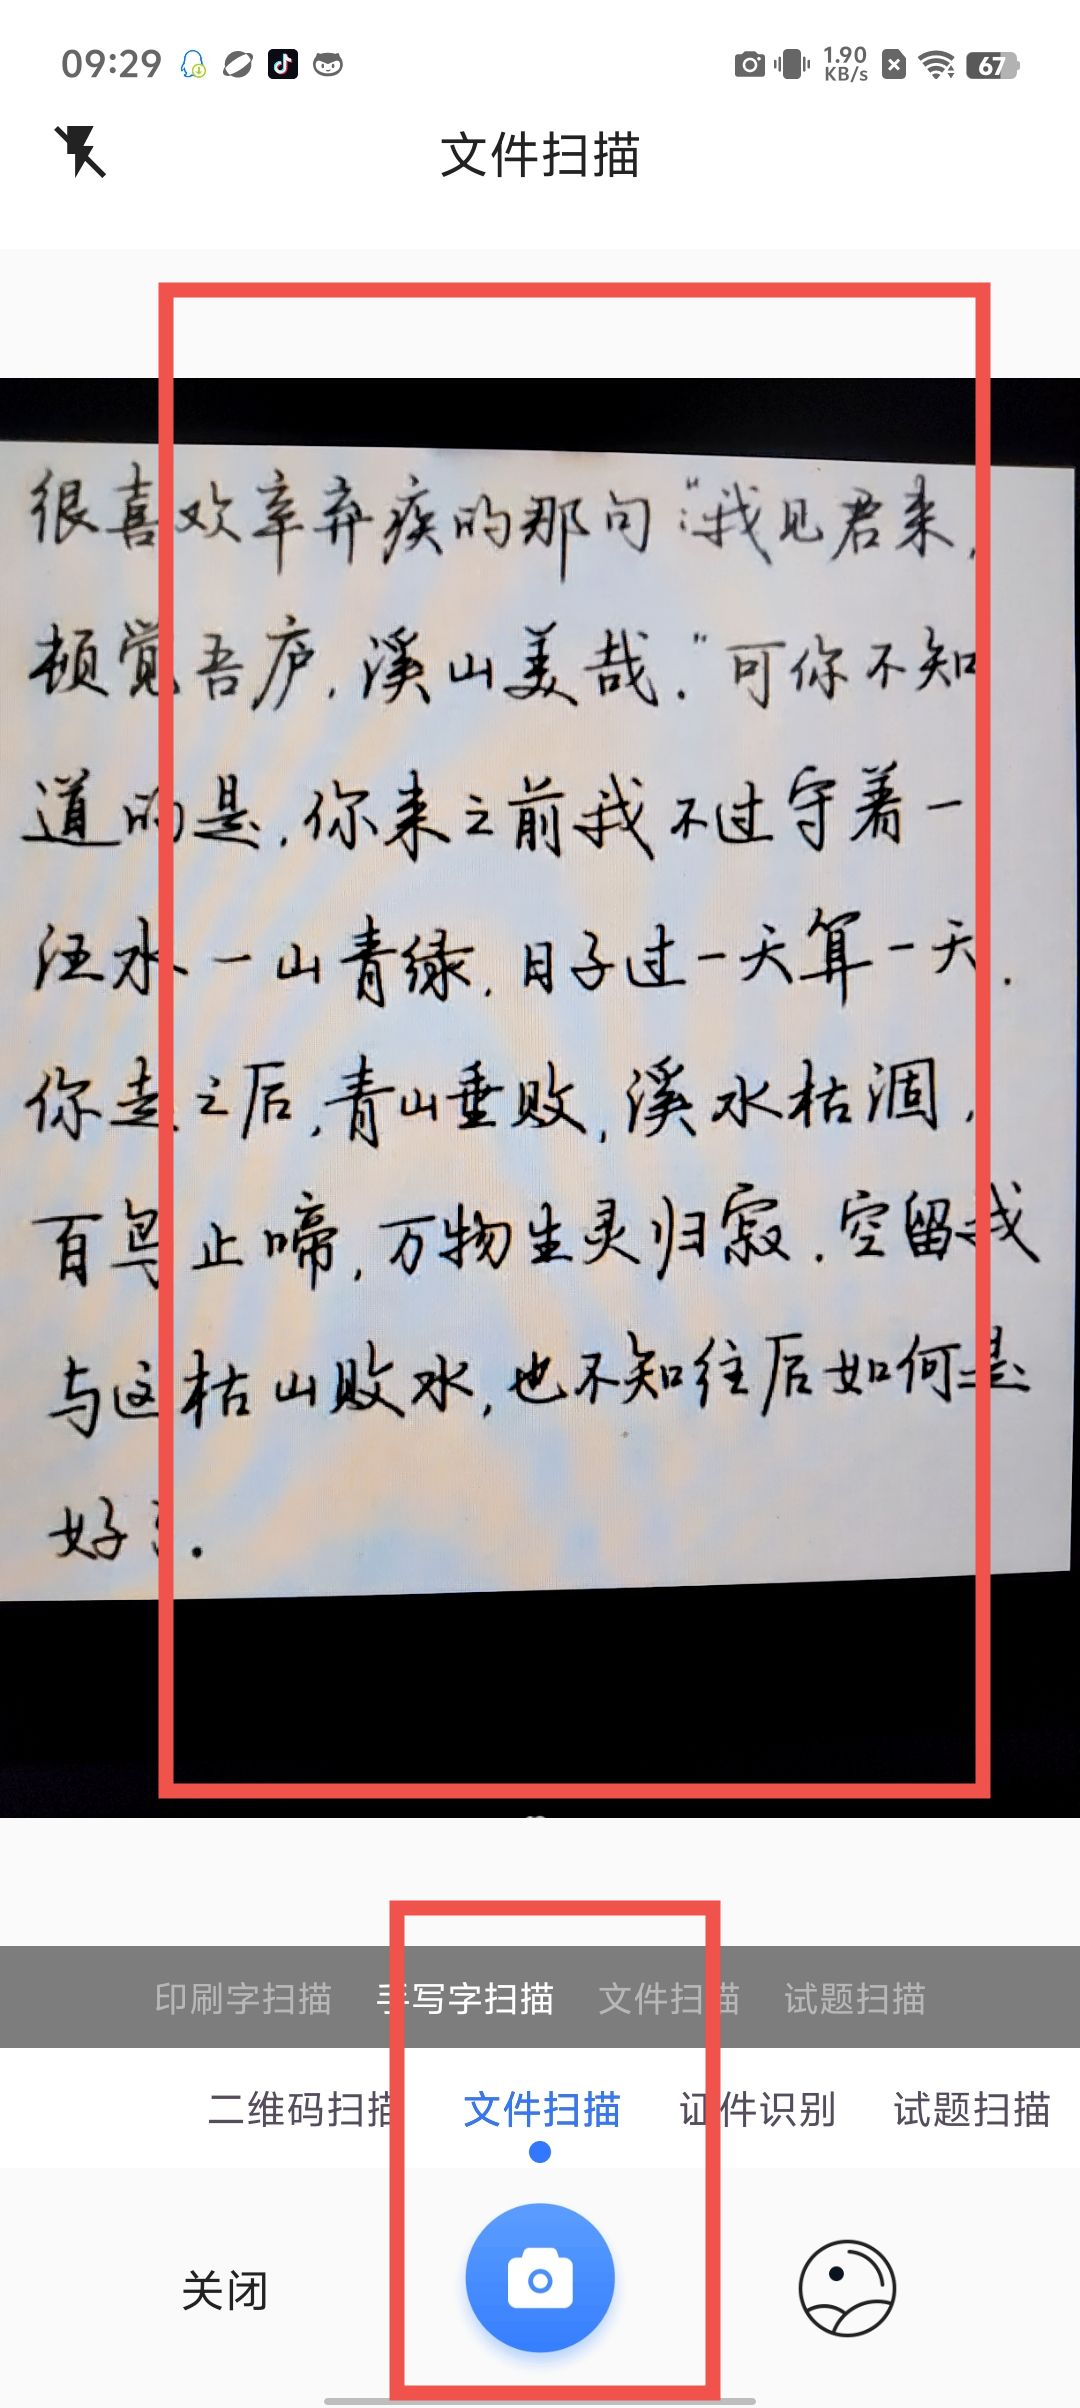 09:29
1.90 KB/s
67
文件扫描
很喜欢辛弃疾的那句：“我见君来，
顿觉吾庐，溪山美哉．”可你不知
道的是，你来之前我不过守着一
汪水一山青绿，日子过一天算一天．
你走之后，青山垂败，溪水枯涸，
百鸟止啼，万物生灵归寂．空留我
与这枯山败水，也不知往后如何是
好．
印刷字扫描 手写字扫描 文件扫描 试题扫描
二维码扫描 文件扫描 证件识别 试题扫描
关闭